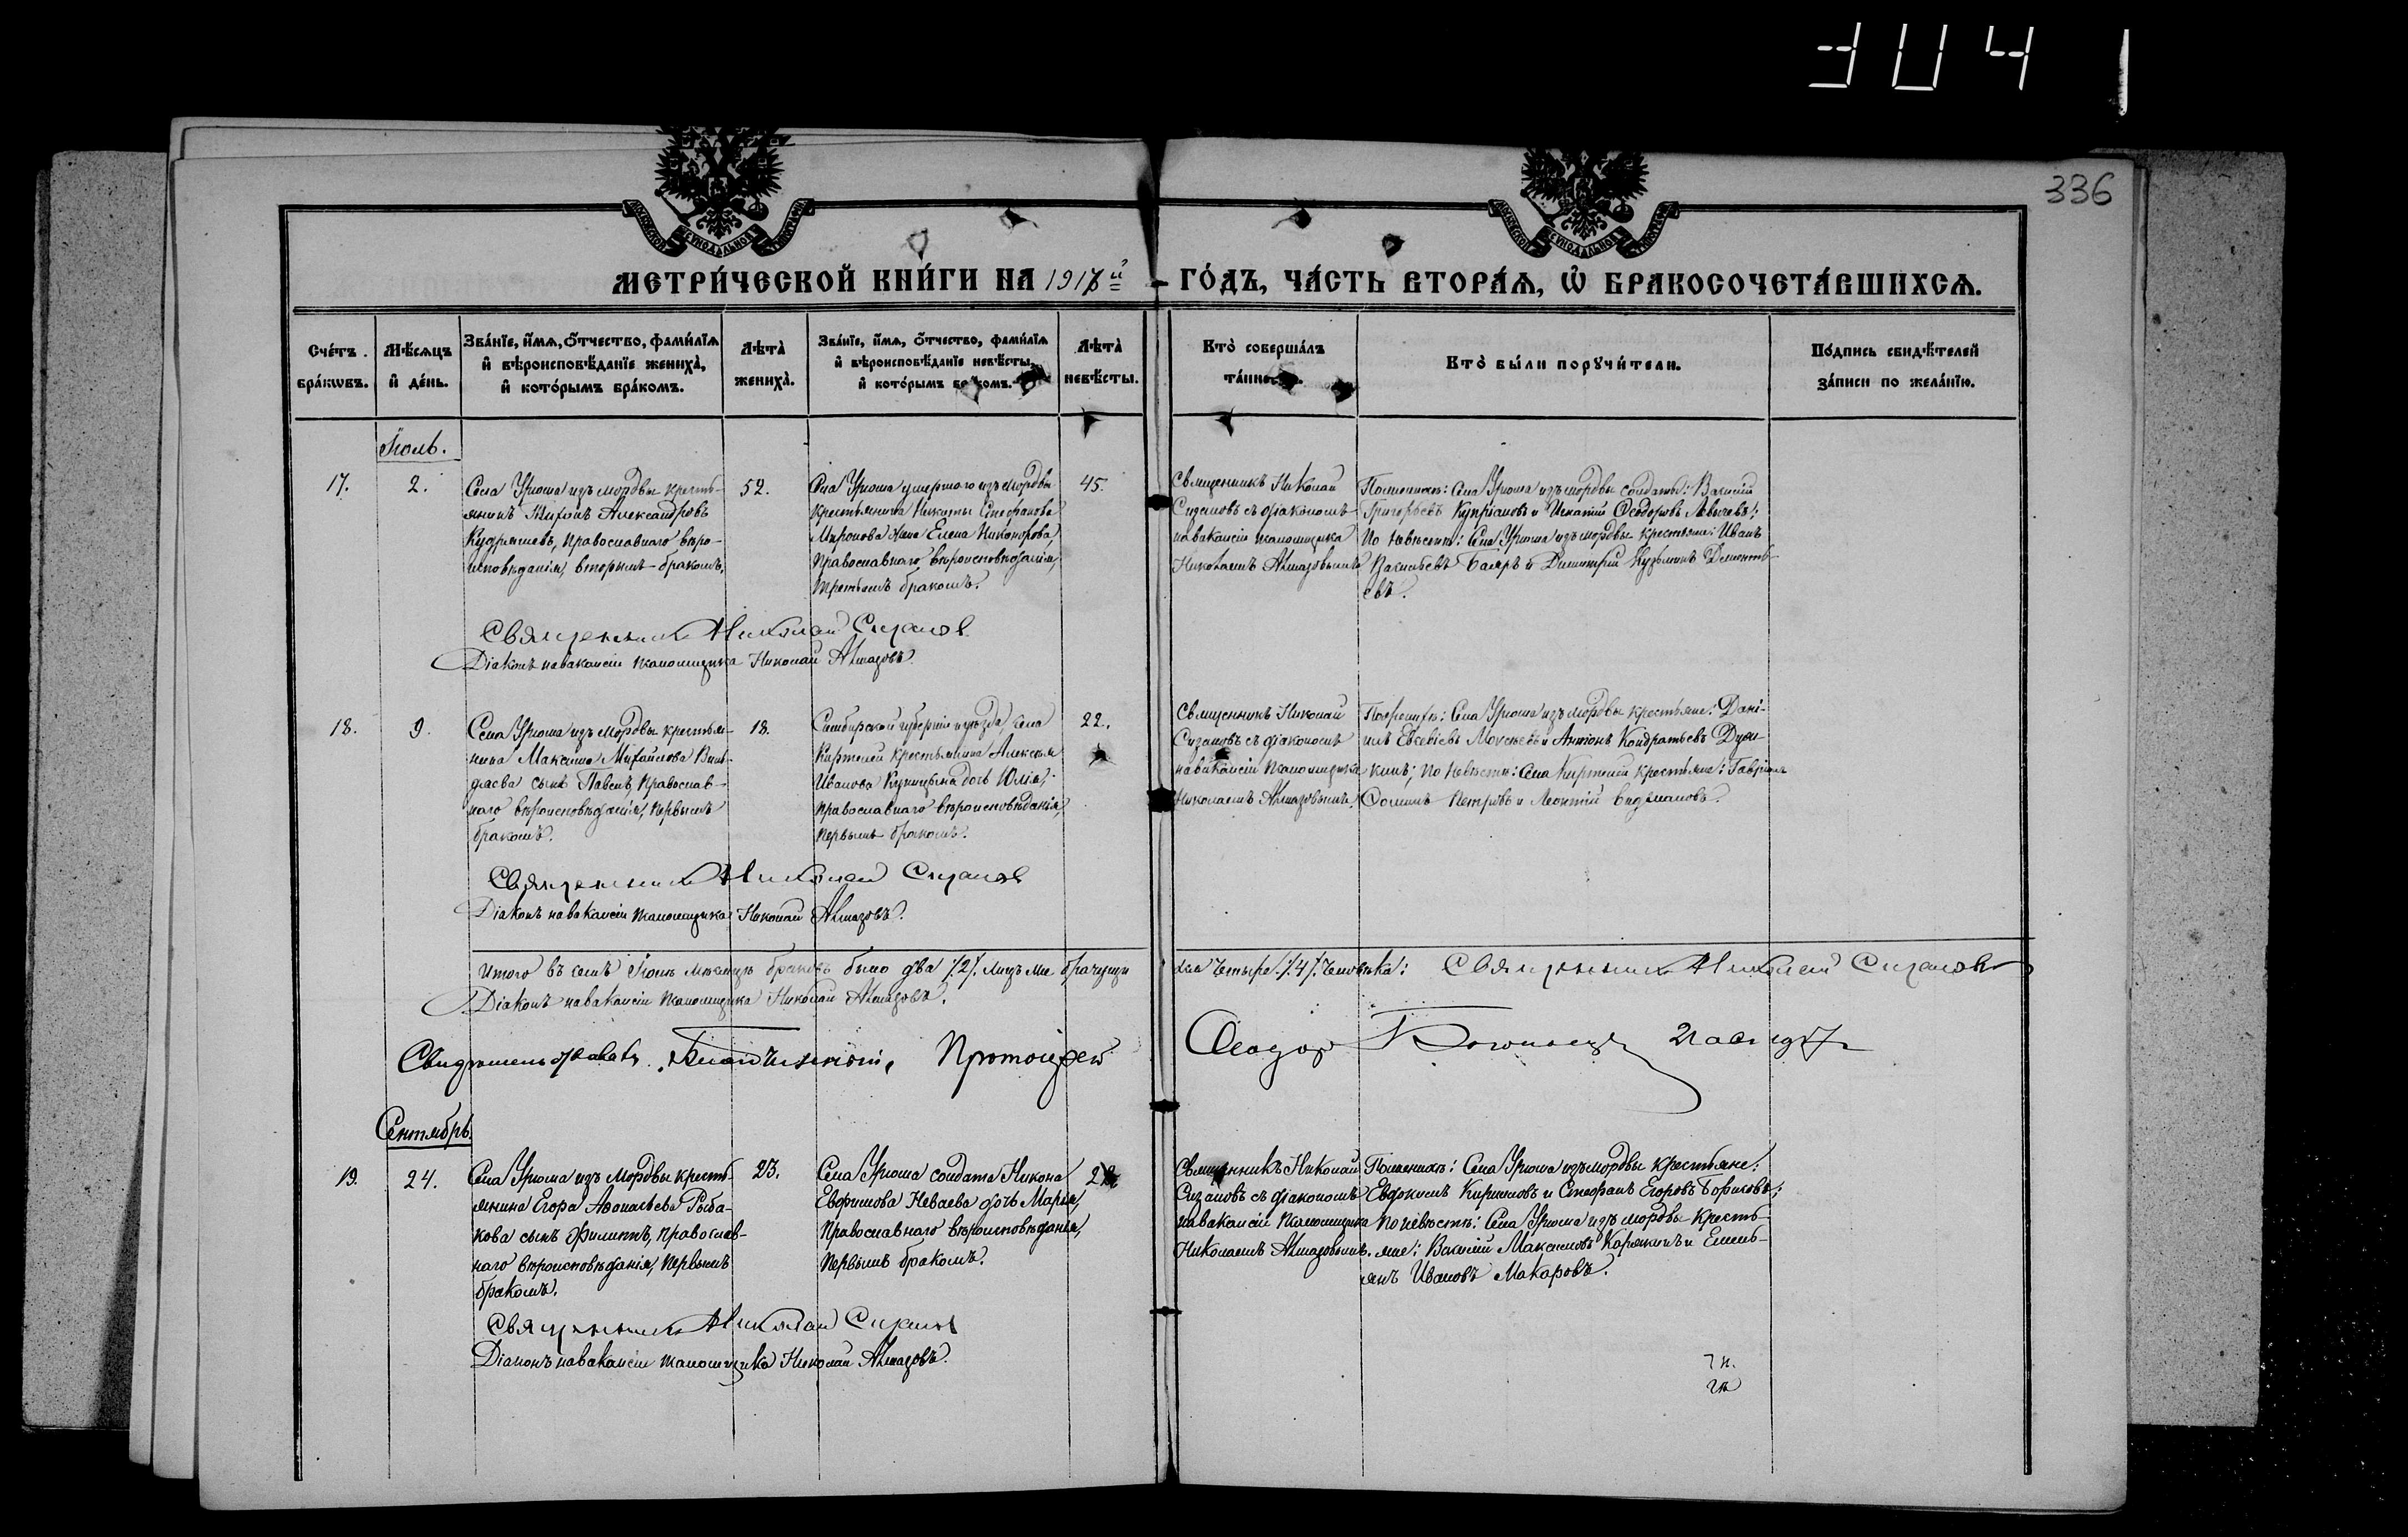 3041
336
МЕТРИ́ЧЕСКОЙ КНИ́ГИ НА 1917й ГО́ДЪ, ЧА́СТЬ ВТОРА́Ѧ, Ѡ҆ БРАКОСОЧЕТА́ВШИХСѦ.
Сче́тъ бра́кѡвъ.
Мѣ́сѧцъ и҆ де́нь.
Зва́нїе, и҆́мѧ, ѻ҆́тчество, фами́лїѧ и҆ вѣроисповѣ́данїе жениха̀, и҆ кото́рымъ бра́комъ.
Лѣта̀ жениха̀.
Зва́нїе, и҆́мѧ, ѻ҆́тчество, фами́лїѧ и҆ вѣроисповѣ́данїе невѣ́сты, и҆ кото́рымъ бра́комъ.
Лѣта̀ невѣ́сты.
Кто̀ соверша́лъ
Кто̀ бы́ли порꙋчи́тели.
По́дпись свидѣ́телей за́писи по жела́нїю.
Іюль.
17.
2.
Села Урюма изъ мордвы кресть-
янинъ Александровъ
Кудряшевъ, православнаго вѣро-
исповѣданія, вторымъ бракомъ.
52.
Села Урюма умершаго изъ мордвы
крестьянина Никиты Стефанова
Миронова жена Елена Никонорова,
православнаго вѣроисповѣданія,
третьимъ бракомъ.
45.
Священникъ Николай
Сизановъ съ діакономъ
на вакансіи псаломщика
Николаемъ Алмазовымъ
По женихѣ: Села Урюма изъ мордвы солдаты: Василій
Григорьевъ Купріановъ и Игнатій Ѳеодоровъ
По невѣстѣ: Села Урюма изъ мордвы крестьяне: Иванъ
Васильевъ и Димитрій Кузьминъ Дементь-
евъ.
Священникъ Николай Сизановъ
Діаконъ на вакансіи псаломщика Николай Алмазовъ.
18.
9.
Села Урюма изъ мордвы крестья-
нина Максима Михайлова
сынъ Павелъ, православ-
наго вѣроисповѣданія, первымъ
бракомъ.
18.
Симбирской губерніи и уѣзда, села
Киртелей крестьянина Алексѣя
Иванова Куницына дочь Юлія,
православнаго вѣроисповѣданія,
первымъ бракомъ.
22.
Священникъ Николай
Сизановъ съ діакономъ
на вакансіи псаломщика
Николаемъ Алмазовымъ.
По женихѣ: Села Урюма изъ мордвы крестьяне: Дані-
илъ Евсевіевъ и Антонъ Кондратьевъ
кинъ; По невѣстѣ: Села Киртелей крестьяне: Гавріилъ
Ѳоминъ Петровъ и Леонтій
Священникъ Николай Сизановъ
Діаконъ на вакансіи псаломщика Николай Алмазовъ.
Итого въ семъ Іюлѣ мѣсяцѣ браковъ было два /2/. Лицъ
четыре /4/ человѣка: Священникъ Николай Сизановъ
Діаконъ на вакансіи псаломщика Николай Алмазовъ.
Свидѣтельствовалъ Благочинный, Протоіерей Ѳеодоръ
Сентябрь.
19.
24.
Села Урюма изъ мордвы кресть-
янина Егора Аѳонасьева Рыба-
кова сынъ Филиппъ, православ-
наго вѣроисповѣданія, первымъ
бракомъ.
23.
Села Урюма солдата Никона
Евфимова Неваева дочь Марія,
православнаго вѣроисповѣданія,
первымъ бракомъ.
Священникъ Николай
Сизановъ съ діакономъ
на вакансіи псаломщика
Николаемъ Алмазовымъ.
По женихѣ: Села Урюма изъ мордвы крестьяне:
Евдокимъ Кирилловъ и Стефанъ Егоровъ Борисовъ;
По невѣстѣ: Села Урюма изъ мордвы кресть-
яне: Василій Максимовъ Карякинъ и Емель-
янъ Ивановъ Макаровъ.
Священникъ Николай Сизановъ
Діаконъ на вакансіи псаломщика Николай Алмазовъ.